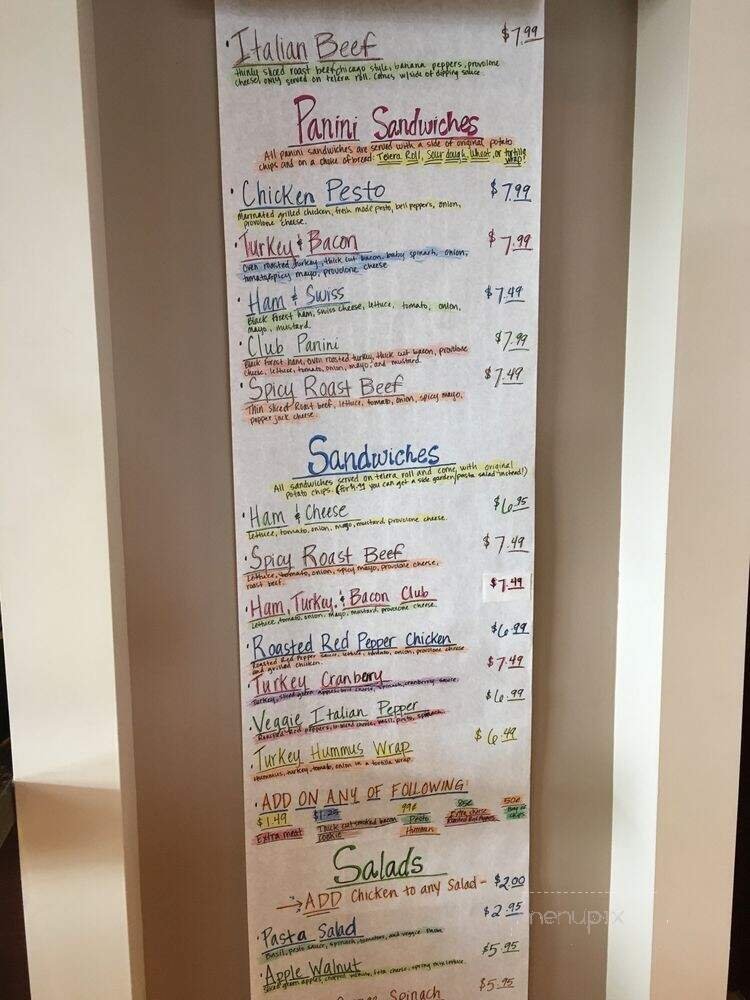 · Italian Beef $7.99
thinly sliced roast beef, chicago style, banana peppers, provolone
cheese, only served on telera roll. comes w/side of dipping sauce.
Panini Sandwiches
All panini sandwiches are served with a side of original potato
chips and on a choice of bread: Telera Roll, Sour dough, Wheat, or tortilla
wrap!
· Chicken Pesto $7.99
marinated grilled chicken, fresh made pesto, bell peppers, onion,
provolone cheese.
· Turkey & Bacon $7.99
Oven roasted turkey, thick cut bacon, baby spinach, onion,
tomato, spicy mayo, provolone cheese
· Ham & Swiss $7.49
Black forest ham, swiss cheese, lettuce, tomato, onion,
mayo, mustard
· Club Panini $7.99
Black forest ham, oven roasted turkey, thick cut bacon, provolone
cheese, lettuce, tomato, onion, mayo, and mustard.
· Spicy Roast Beef $7.49
Thin sliced Roast beef, lettuce, tomato, onion, spicy mayo,
pepper jack cheese.
Sandwiches
All sandwiches served on telera roll and come with original
potato chips. (for you can get a side garden/pasta salad instead!)
· Ham & Cheese $6.95
Lettuce, tomato, onion, mayo, mustard, provolone cheese.
· Spicy Roast Beef $7.49
Lettuce, tomato, onion, spicy mayo, provolone cheese,
roast beef.
· Ham, Turkey, & Bacon Club $7.49
Lettuce, tomato, onion, mayo, mustard, provolone cheese.
· Roasted Red Pepper Chicken $6.99
Roasted Red Pepper sauce, lettuce, tomato, onion, provolone cheese
and grilled chicken.
· Turkey Cranberry $7.49
Turkey, sliced green apples, cheese, spinach, cranberry sauce.
· Veggie Italian Pepper $6.99
Roasted Red peppers, cheese, basil, pesto, spinach.
· Turkey Hummus Wrap $6.49
Hummus, turkey, tomato, onion in a tortilla wrap.
· ADD ON ANY OF FOLLOWING:
$1.49 $1.25 99¢ 85¢ 50¢
Extra meat Thick cut smoked bacon Pesto Extra cheese Bag of
cookie Hummus Roasted Red Peppers chips
Salads
→ ADD Chicken to any Salad - $2.00
· Pasta Salad $2.95
Basil, pesto sauce, spinach, tomatoes, and veggie
· Apple Walnut $5.95
Sliced green apples, feta cheese, spring mix lettuce.
Spinach $5.95
menupix